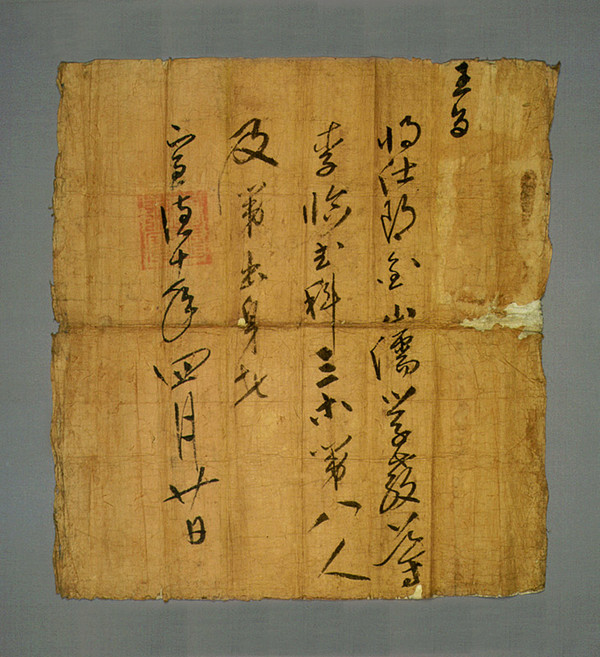 王旨
將仕郎金山儒學敎導
李臨科三等第八人
及第出身者
宣德十年四月廿日